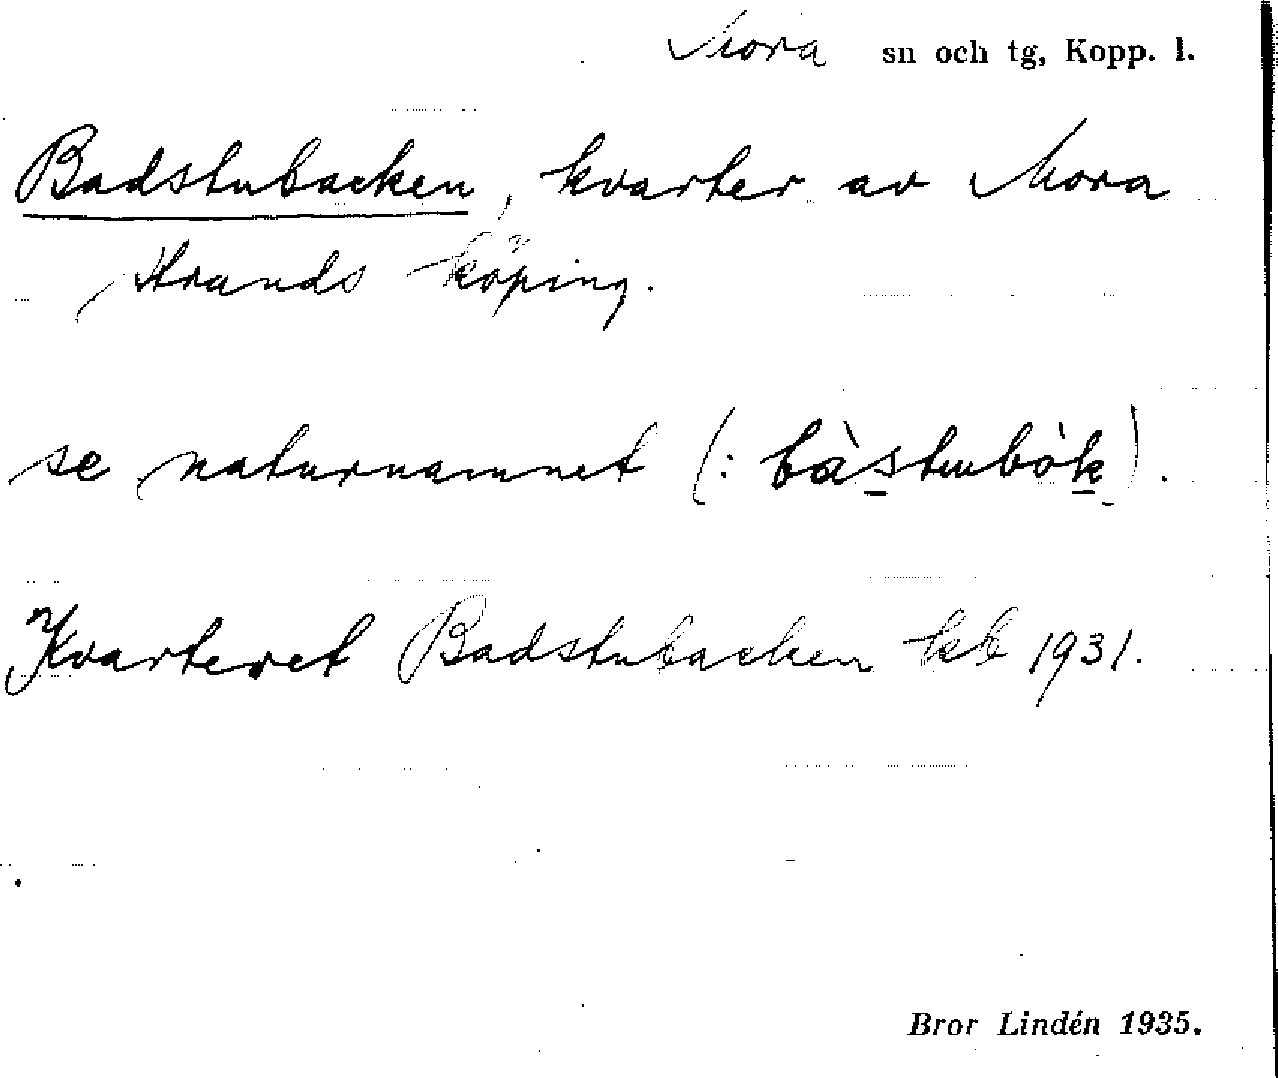 Mora sn och tg, Kopp. l.
Badstubacken, kvarter av Mora
Strands köping.
se naturnamnet (: bàstubòk).
Kvarteret Badstubacken kb 1931.
Bror Lindén 1935.